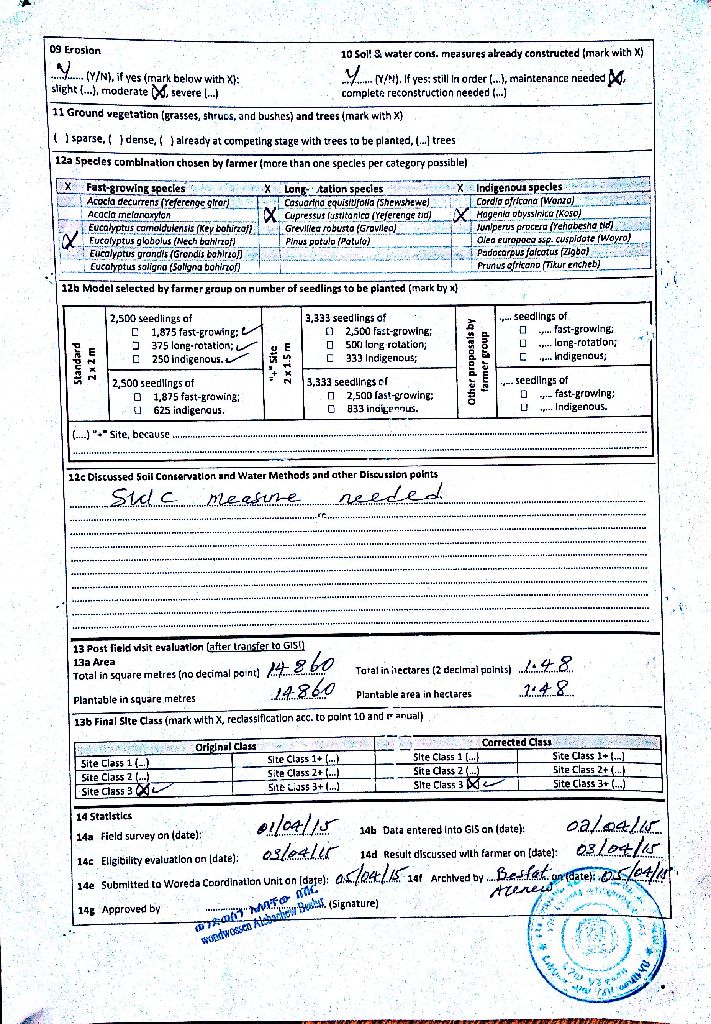 09 Erosion
Y (Y/N), if yes (mark below with X):
slight (...), moderate (X), severe (...)
10 Soil & water cons. measures already constructed (mark with X)
Y (Y/N). If yes: still in order (...), maintenance needed (X),
complete reconstruction needed (...)
11 Ground vegetation (grasses, shrubs, and bushes) and trees (mark with X)
( ) sparse, ( ) dense, ( ) already at competing stage with trees to be planted, (...) trees
12a Species combination chosen by farmer (more than one species per category possible)
X Fast-growing species X Long- tation species X Indigenous species
Acacia decurrens (Yeferenge girar) Casuarina equisitifolia (Shewshewe) Cordia africana (Wanza)
Acacia melanoxylon X Cupressus lustitanica (Yeferenge tid) X Hagenia abyssinica (Koso)
Eucalyptus camaldulensis (Key bahirzaf) Grevillea robusta (Gravilea) Juniperus procera (Yehabesha tid)
X Eucalyptus globolus (Nech bahirzaf) Pinus patula (Patula) Olea europaea ssp. cuspidate (Woyra)
Eucalyptus grandis (Grandis bahirzaf) Podocarpus falcatus (Zigba)
Eucalyptus saligna (Saligna bahirzaf) Prunus africana (Tikur encheb)
12b Model selected by farmer group on number of seedlings to be planted (mark by x)
Standard
2 x 2 m
2,500 seedlings of
☐ 1,875 fast-growing; ✓
☐ 375 long-rotation; ✓
☐ 250 indigenous. ✓
2,500 seedlings of
☐ 1,875 fast-growing;
☐ 625 indigenous.
"+" Site
2 x 1.5 m
3,333 seedlings of
☐ 2,500 fast-growing;
☐ 500 long rotation;
☐ 333 indigenous;
3,333 seedlings of
☐ 2,500 fast-growing;
☐ 833 indigenous.
Other proposals by
farmer group
.,... seedlings of
☐ .,... fast-growing;
☐ .,... long-rotation;
☐ .,... indigenous;
.,... seedlings of
☐ .,... fast-growing;
☐ .,... indigenous.
(....) "+" Site, because
12c Discussed Soil Conservation and Water Methods and other Discussion points
SWC measure needed
13 Post field visit evaluation (after transfer to GIS!)
13a Area
Total in square metres (no decimal point) 14860 Total in hectares (2 decimal points) 1.48
Plantable in square metres 14860 Plantable area in hectares 1.48
13b Final Site Class (mark with X, reclassification acc. to point 10 and manual)
Original Class Corrected Class
Site Class 1 (...) Site Class 1+ (...) Site Class 1 (...) Site Class 1+ (...)
Site Class 2 (...) Site Class 2+ (...) Site Class 2 (...) Site Class 2+ (...)
Site Class 3 (X) ✓ Site Class 3+ (...) Site Class 3 (X) ✓ Site Class 3+ (...)
14 Statistics
14a Field survey on (date): 01/04/15 14b Data entered into GIS on (date): 02/04/15
14c Eligibility evaluation on (date): 03/04/15 14d Result discussed with farmer on (date): 03/04/15
14e Submitted to Woreda Coordination Unit on (date): 05/04/15 14f Archived by on (date): 05/04/15
14g Approved by (Signature)